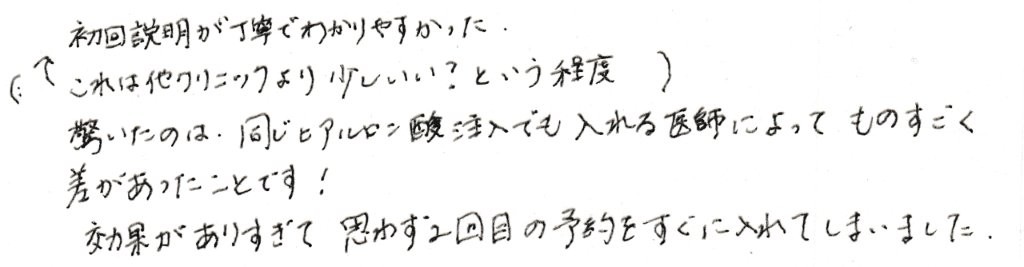 初回説明が丁寧でわかりやすかった.
(:↑これは他クリニックより少しいい?という程度 )
驚いたのは.同じヒアルロン酸注入でも入れる医師によってものすごく
差があったことです!
効果がありすぎて 思わず2回目の予約をすぐに入れてしまいました.